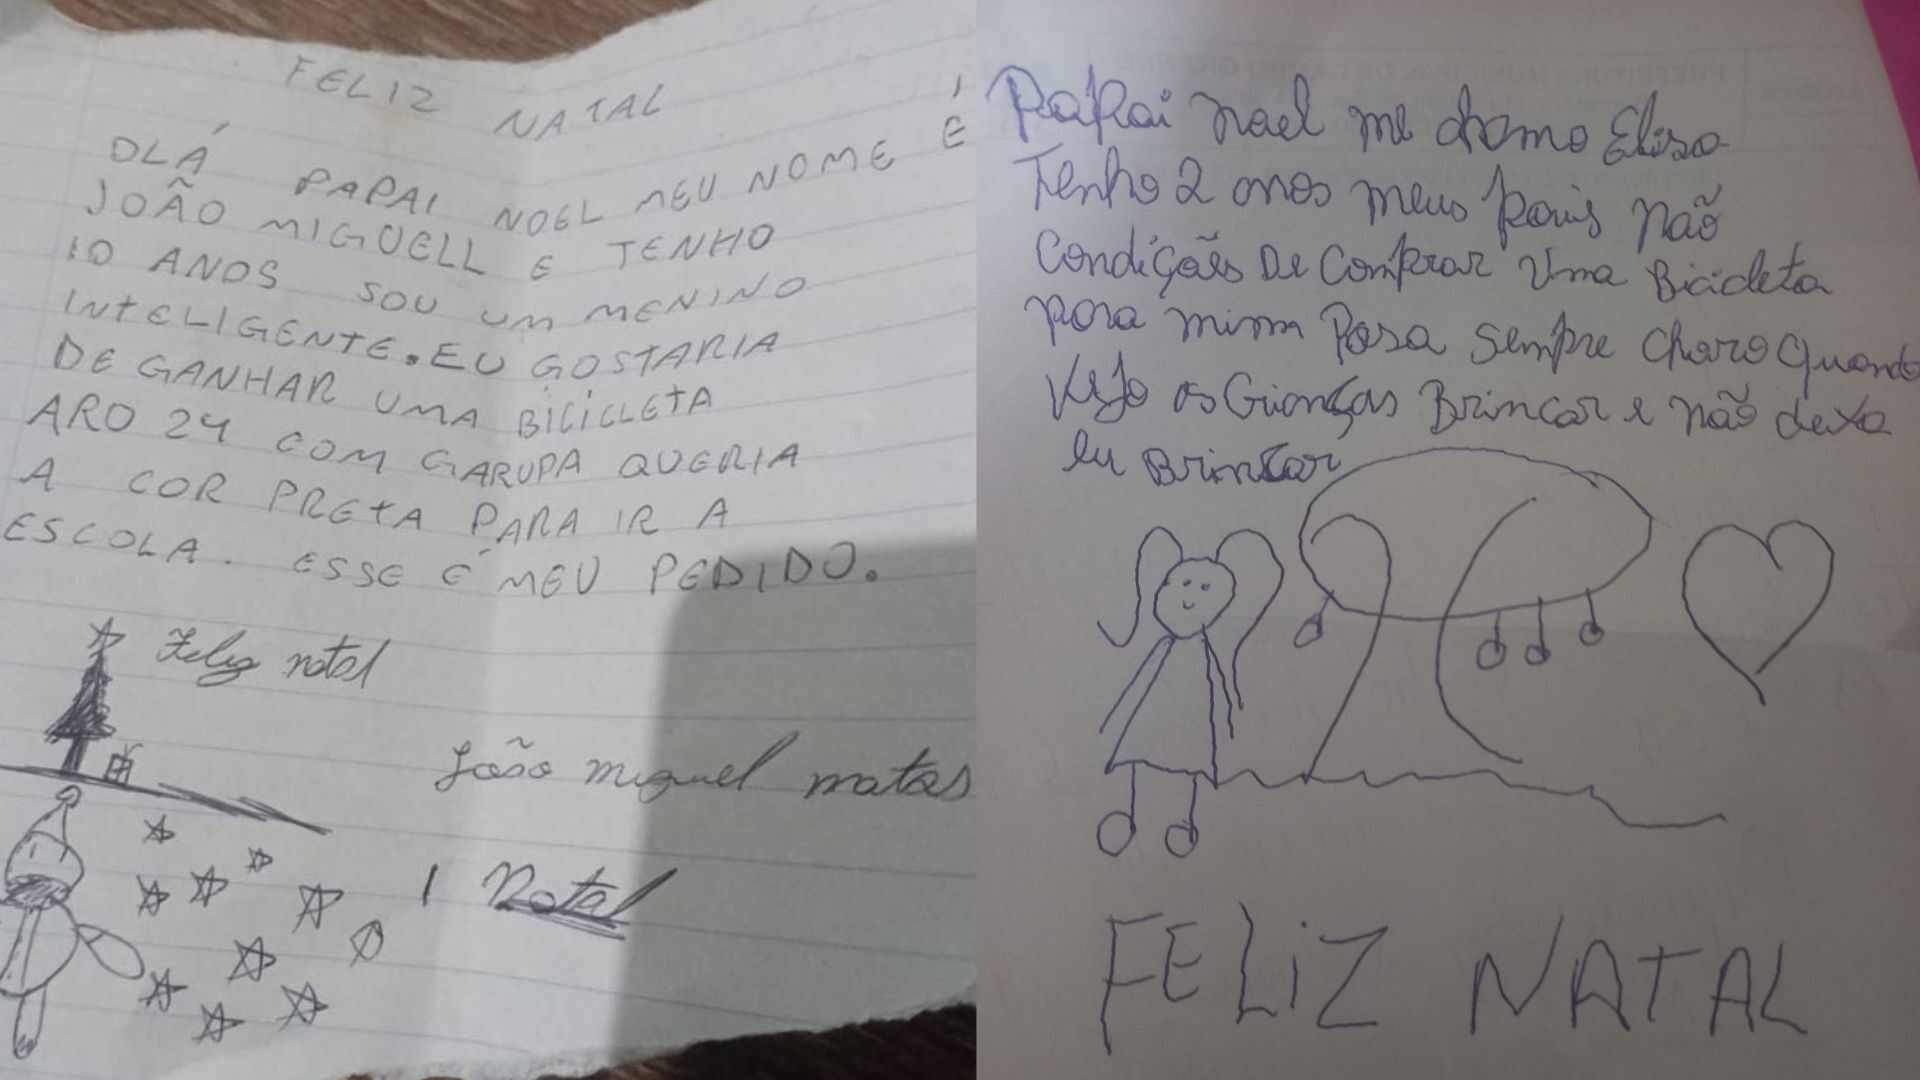 FELIZ NATAL
OLÁ PAPAI NOEL MEU NOME É
JOÃO MIGUELL E TENHO
10 ANOS SOU UM MENINO
INTELIGENTE. EU GOSTARIA
DE GANHAR UMA BICICLETA
ARO 24 COM GARUPA QUERIA
A COR PRETA PARA IR A
ESCOLA. ESSE É MEU PEDIDO.
Feliz natal
João miguel matos
Natal
Papai Noel me chamo Elisa
Tenho 2 anos meus pais não
Condições De Comprar Uma Bicicleta
para mimm Posa sempre choro quando
vejo as Crianças Brincar e não dexa
eu Brincar
FELIZ NATAL